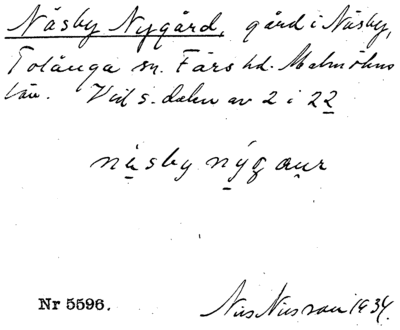 Näsby Nygård, gård i Näsby,
Tolånga sn. Färs hd. Malmöhus
län. Vid s. delen av 2 i 22
näsby nýgaur
Nr 5596.
Nils Nilsson 1934.